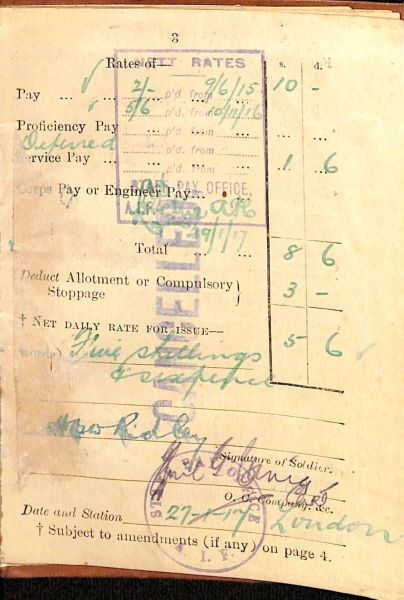 3
NETT RATES
Rates of— s. d.
2/- p'd. from 9/6/15
Pay ... ... 10 -
5/6 p'd. from 10/11/16
Proficiency Pay ... p'd. from ... ...
Deferred p'd. from
Service Pay ... p'd. from 1 6
Corps Pay or Engineer Pay...
PAY OFFICE,
A.I.F.
29/1/17
Total ... ... 8 6
Deduct Allotment or Compulsory } 3 -
Stoppage
† NET DAILY RATE FOR ISSUE— 5 6
words) Five shillings
& sixpence
CANCELLED
Ridley
Signature of Soldier.
O. C. Company, &c.
Date and Station 27-1-17 London
† Subject to amendments (if any) on page 4.
A. I. F.